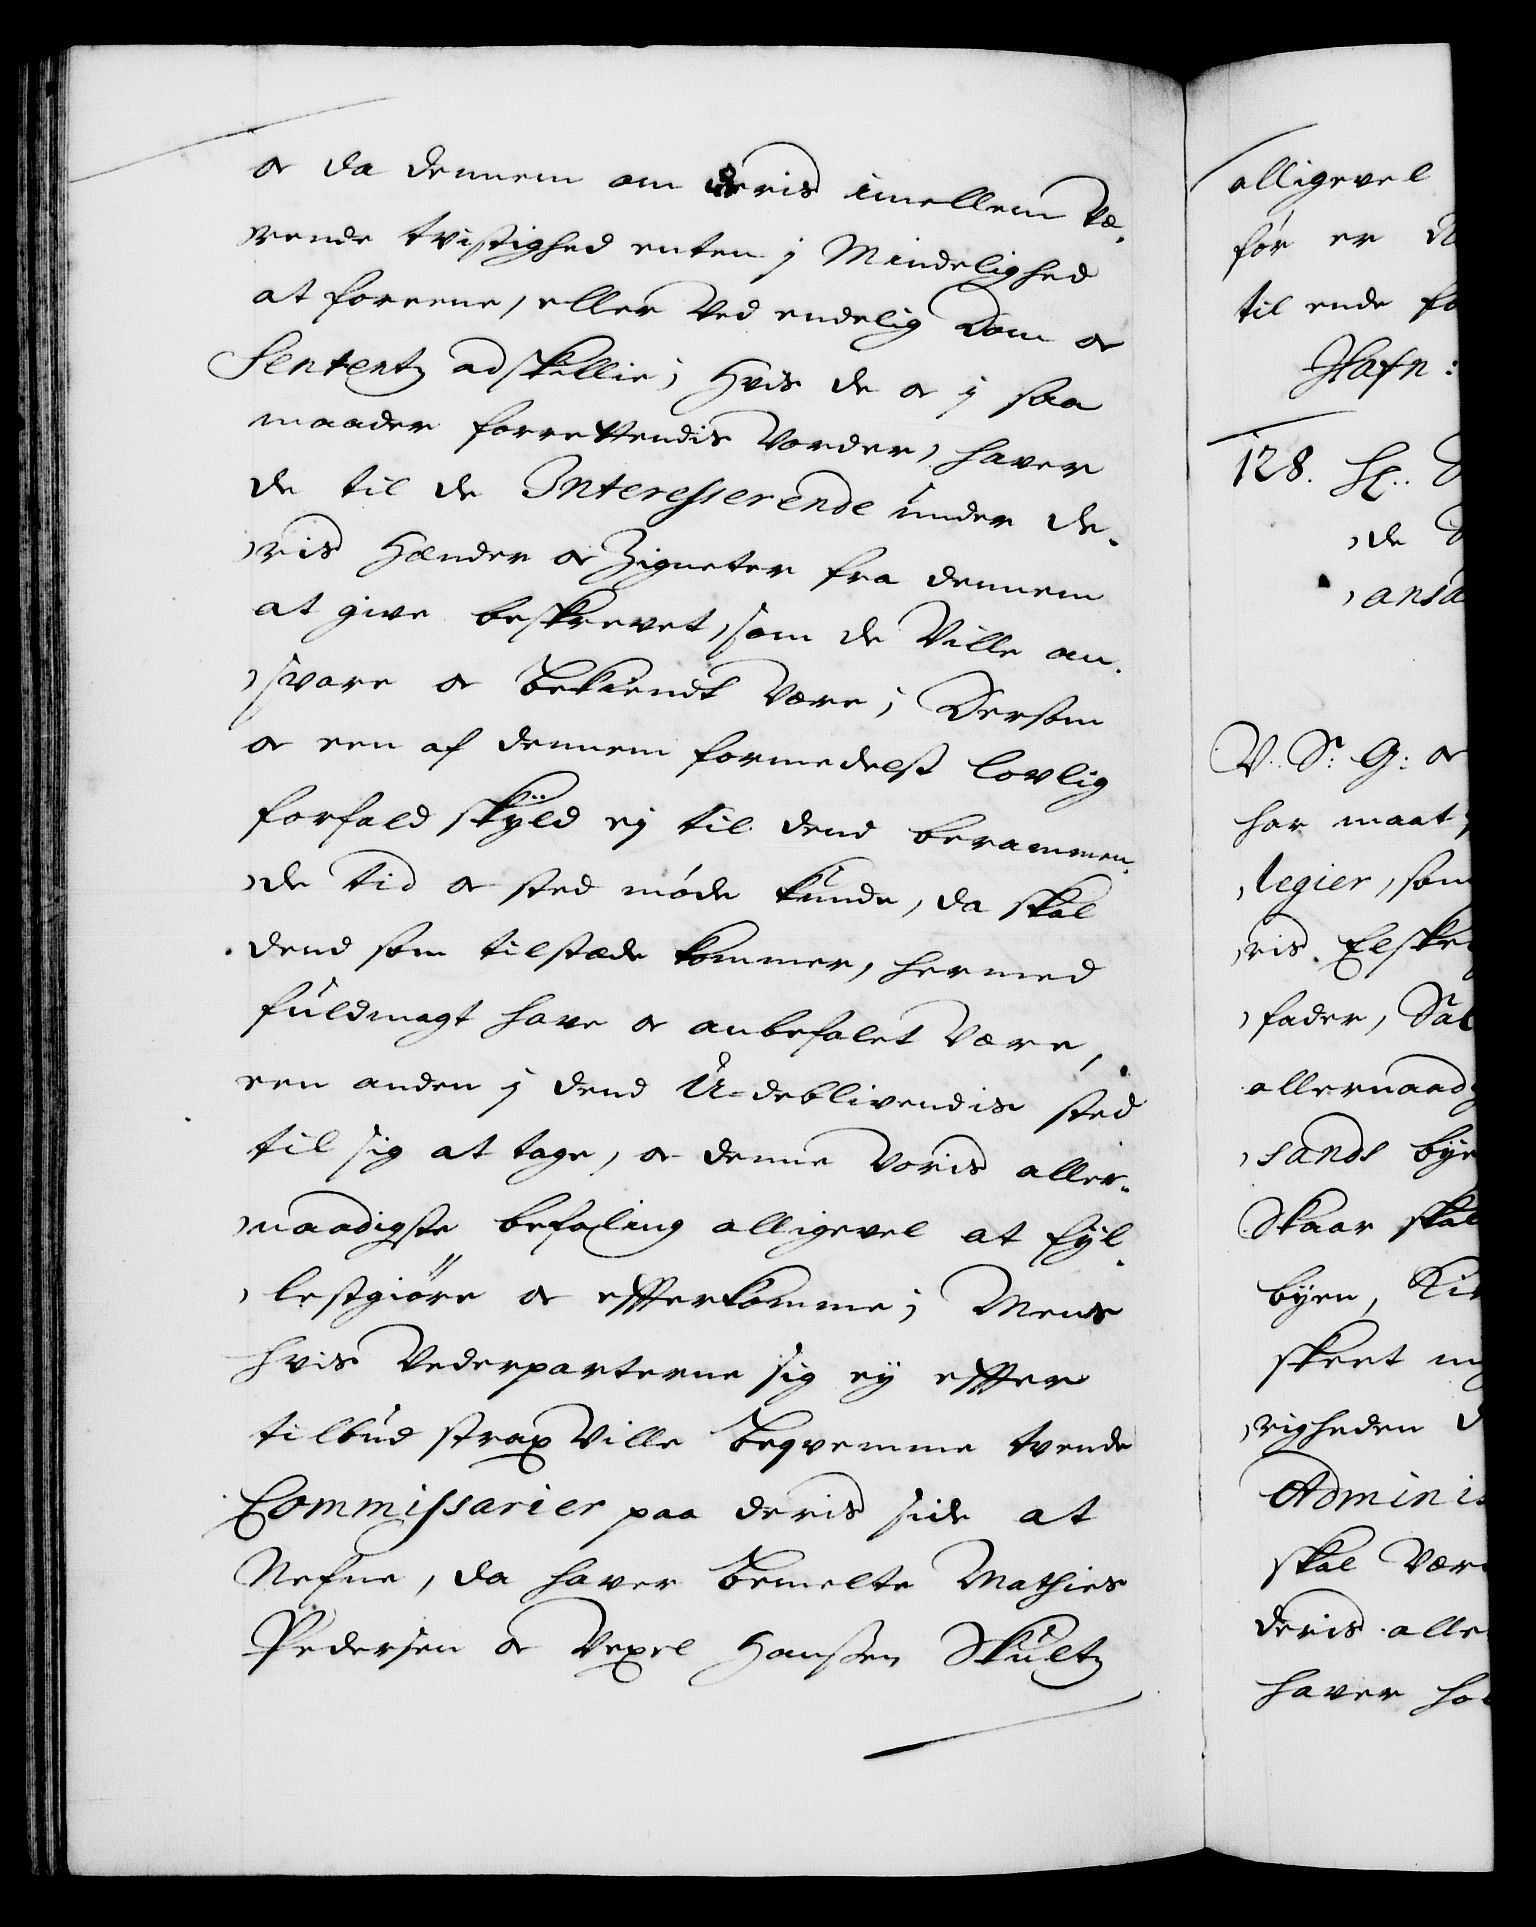 oc da dennem om deris imellem væ-
rende tvistighed enten i Mindelighed
at foreene, eller ved endelig Dom oc
Sententz adskillie; Hvis de oc i saa
maader forrettendis vorder, haver
de til de Interesserende under de-
ris Hænder oc Zigneter fra dennem
at give beskrevet, som de ville an-
svare oc bekiendt være; Dersom
oc een af dennem formedelst lovlig
forfald skÿld ej til dend berammen-
de tid oc sted møde kunde, da skal
dend som tilstæde kommer, hermed
fuldmagt have oc anbefalet være,
een anden i dend U-deblivendis sted
til sig at tage, oc denne voris aller-
naadigste befaling alligevel at fÿl-
lestgiøre oc efterkomme; Mens
hvis Vederparterne sig eÿ efter
tilbud strax ville beqvemme tvende
Commissarier paa deris side at
Nefne, da haver bemelte Mathies
Pedersen oc Vexel Hanssen Skultz
alligevel
før er
til ende
Hafn:
128.
de
V. S. G: oc
har maat
legier, som
ris Elske
fader, Sal
allernaad
sands bÿe
Skaar skal
bÿen,
skeet
righeden
Adminis
skal vær
deris alle
haver